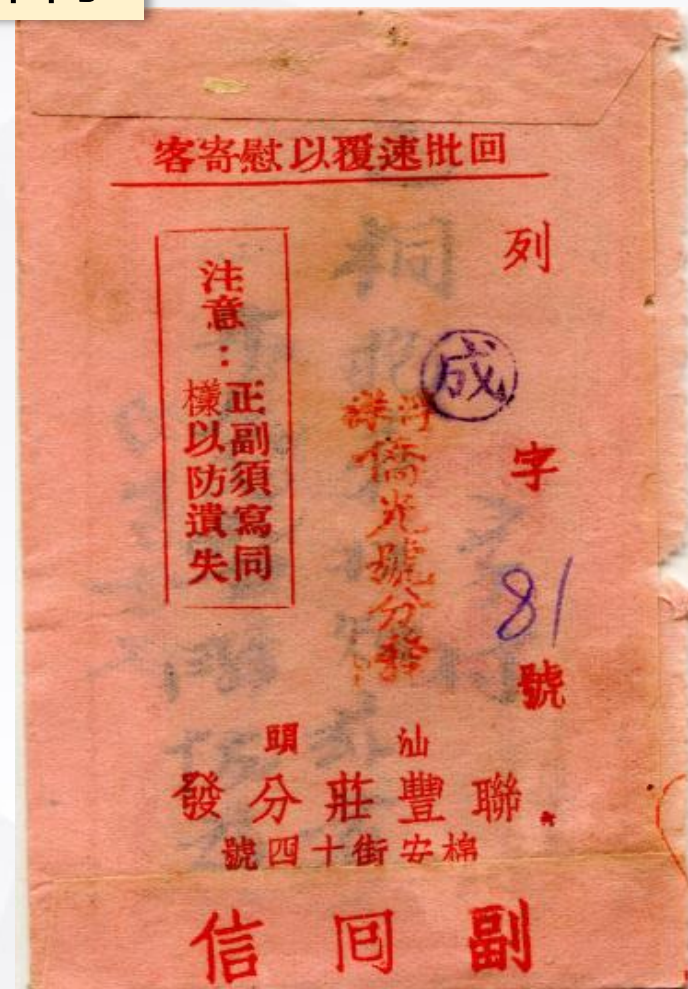 回批速覆以慰寄客
列 成 字 81 號
浮洋
僑光號分發
注意：
正副須寫同
樣以防遺失
汕頭
聯豐莊分發
棉安街十四號
副回信